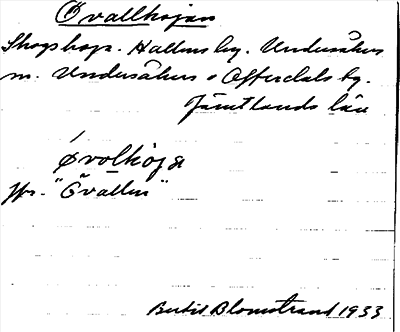 Övallhöjan
Skogshöjd. Hallens by. Undersåkers
sn. Undersåkers o Offerdals tg.
Jämtlands län
øvolhöja
Jfr. "Övallen"
Bertil Blomstrand 1933